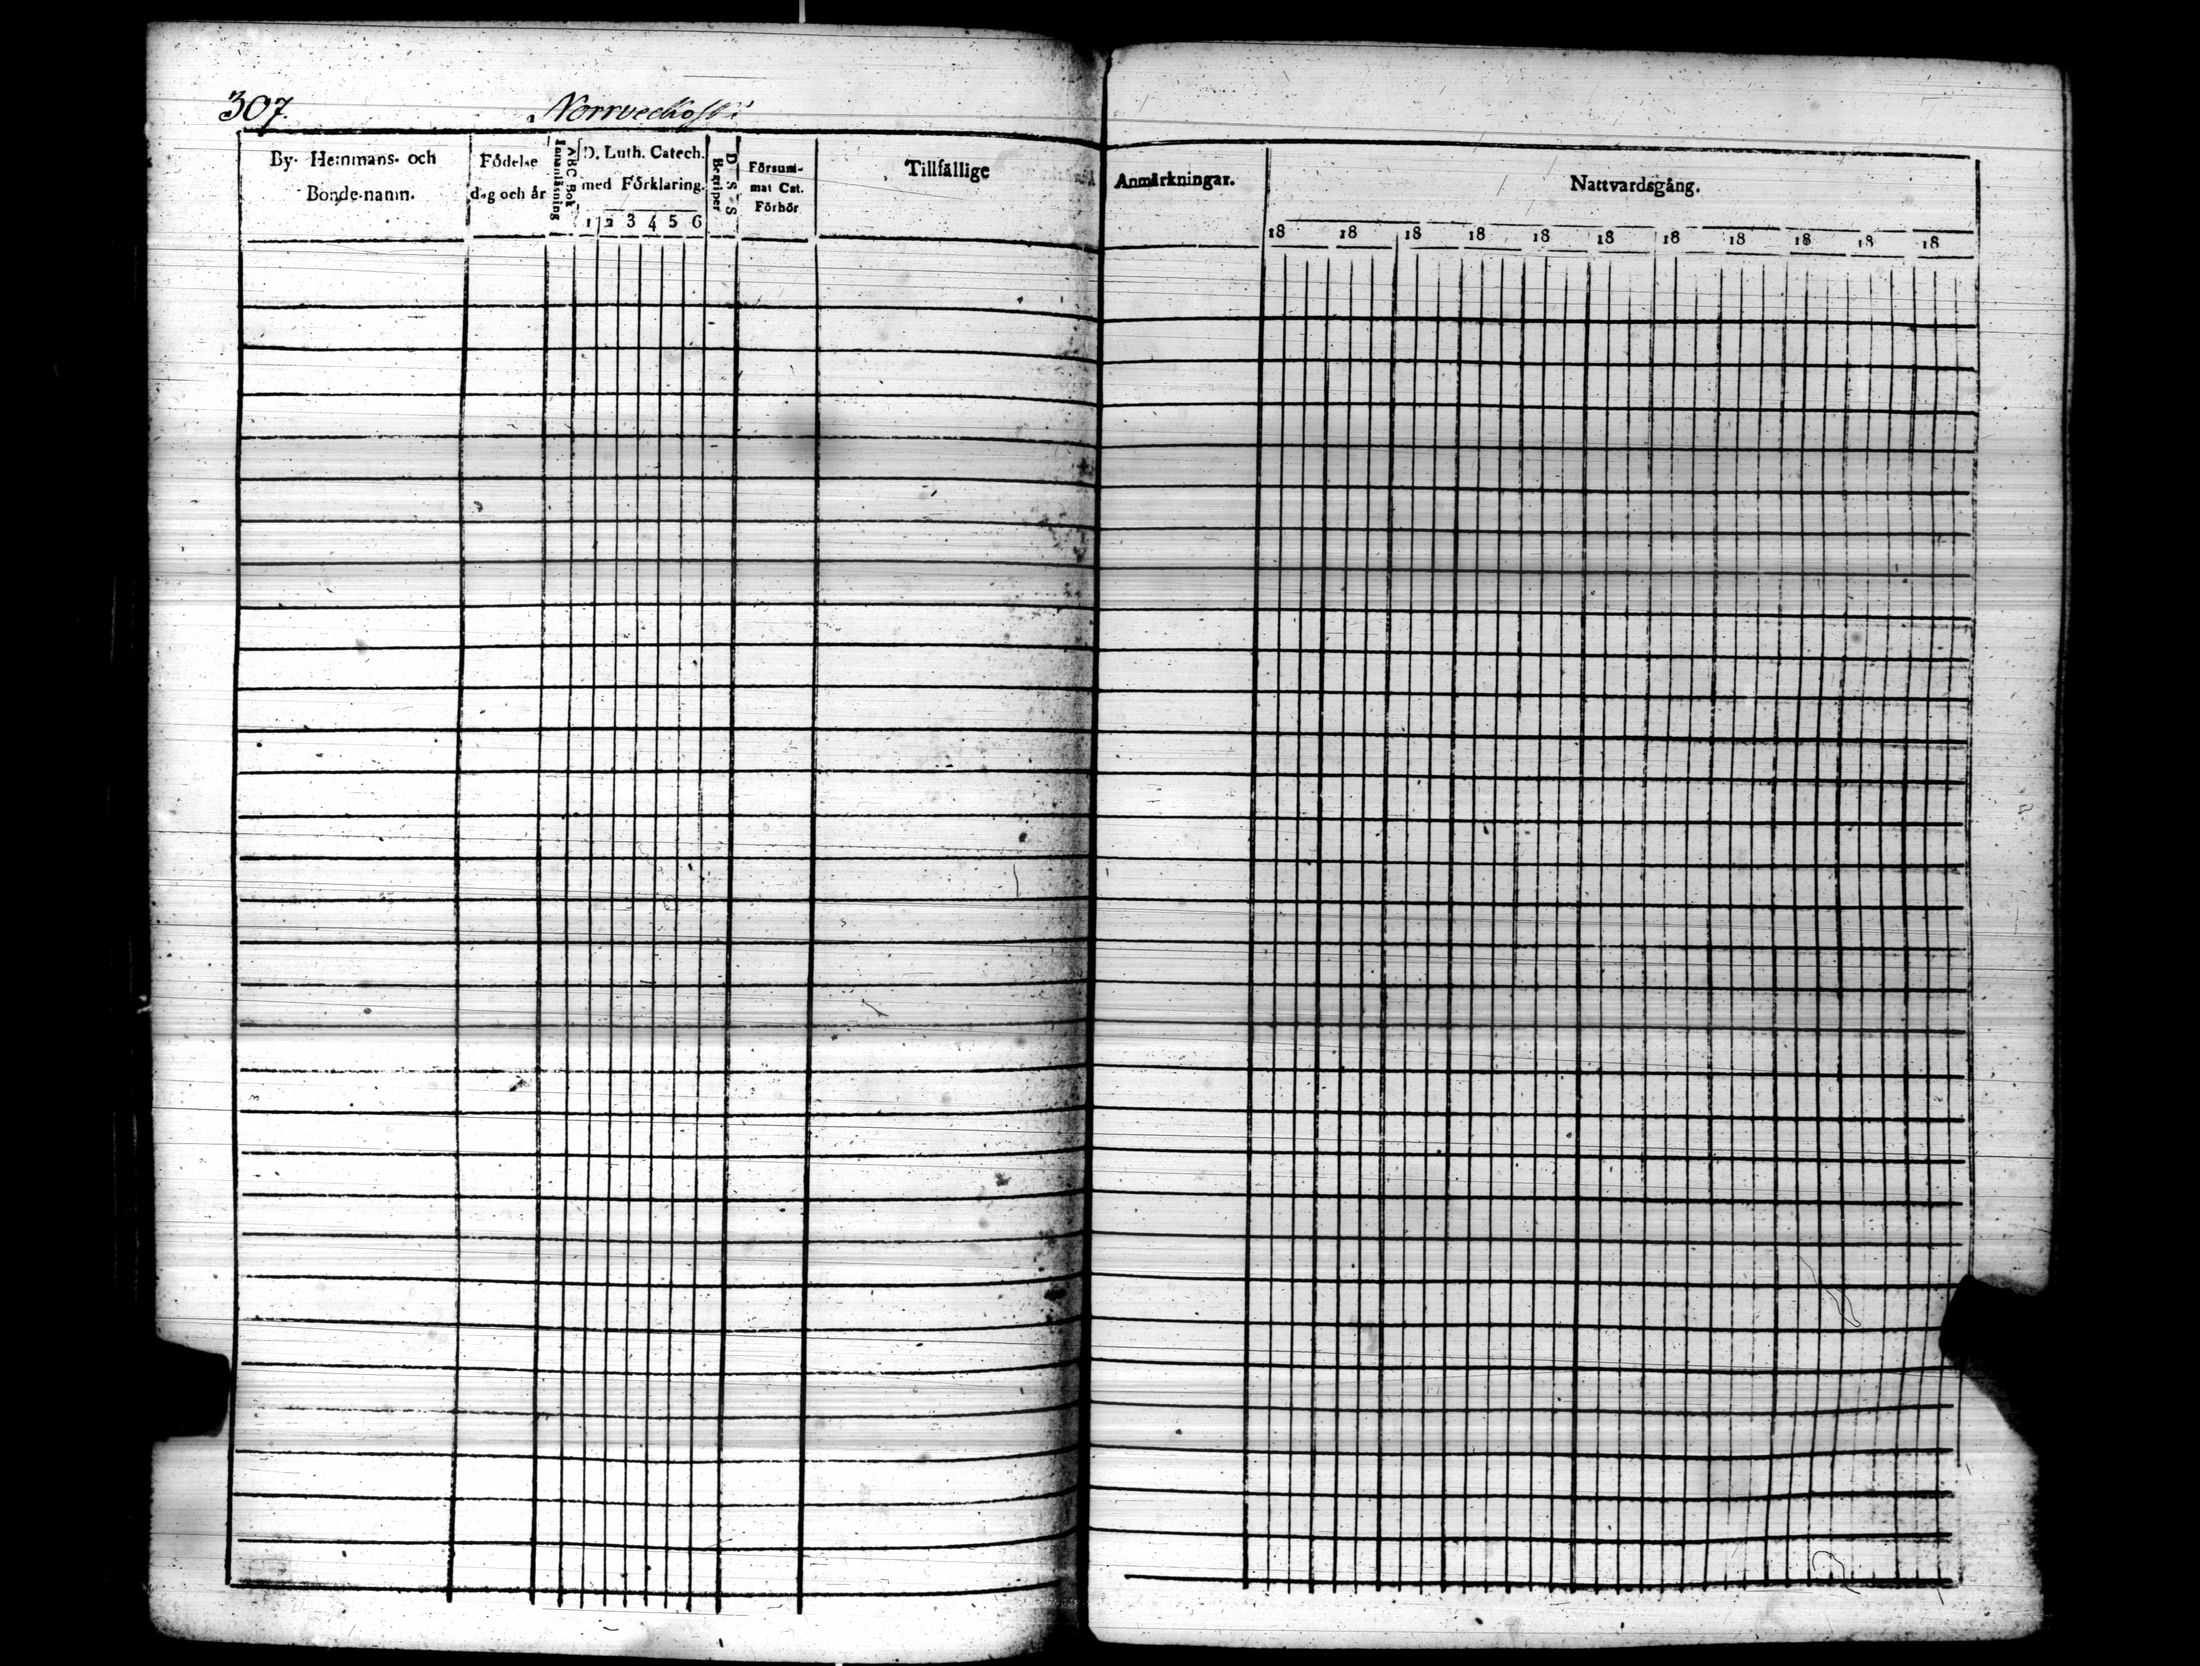 307. Norrveckoski
By- Hemmans- och
Bonde-namn.
Födelse
dag och år
Innanläsning
ABC Bok
D. Luth. Catech.
med Förklaring.
1 2 3 4 5 6
Begriper
D. S. S
Försum-
mat Cat.
Förhör
Tillfällige
Anmärkningar.
Nattvardsgång.
18 18 18 18 18 18 18 18 18 18 18